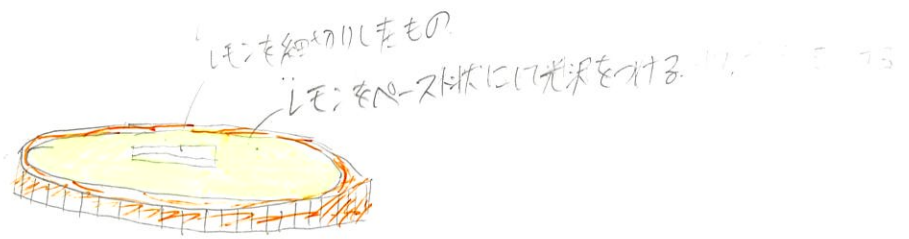 レモンを細切りしたもの
レモンをペースト状にして光沢をつける